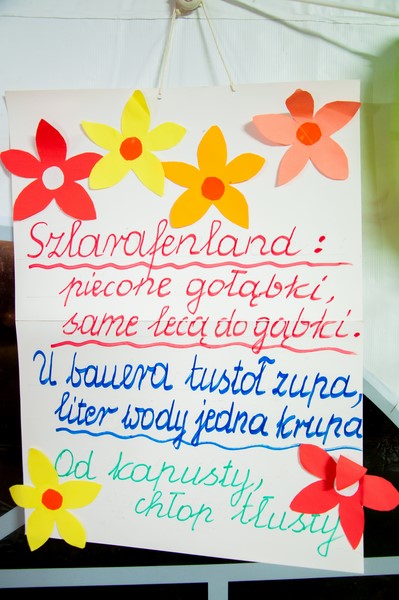 Szlarafenland :
pieczone gołąbki,
same lecą do gąbki.
U bauera tustoł zupa,
liter wody jedna krupa
Od kapusty,
chłop tłusty